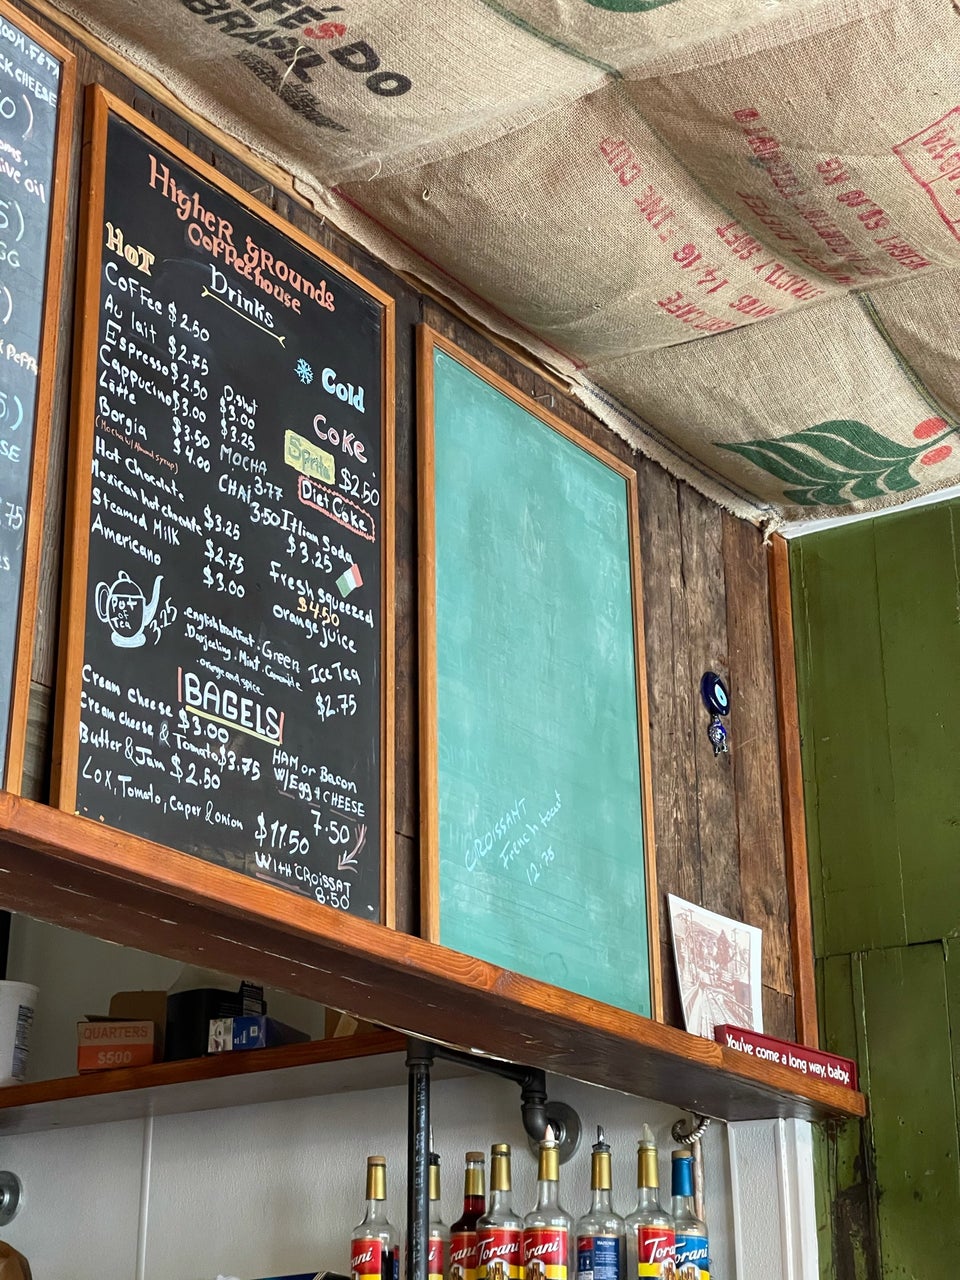 CK CHEESE
ive oil
GG
SE
Higher grounds
Coffeehouse
Drinks
HOT
Coffee $2.50
Au lait $2.75
Espresso $2.50
D.shot $3.00
Cappucino $3.00
$3.25
Latte $3.50
MOCHA 3.77
Borgia $4.00
(Mocha w/ Almond syrup)
CHAi 3.50
Hot Chocolate $3.25
Mexican hot chocolate $2.75
Steamed Milk $3.00
Americano
Pot of Tea 3.25
.english breakfast . Green
.Darjeeling . Mint . Camomile
. orange and spice
Cold
Coke
Sprite $2.50
Diet Coke
Itlian Soda
$3.25
Fresh squeezed
$4.50
orange juice
Ice Tea
$2.75
BAGELS
Cream cheese $3.00
Cream cheese & Tomato $3.75
Butter & Jam $2.50
Lox, Tomato, caper & onion $11.50
HAM or Bacon
W/Egg & CHEESE
7.50
WITH CROISSAT
8.50
CROISSANT
French toast
12.75
CAFÉS DO
BRASIL
You've come a long way, baby.
QUARTERS
$500
Torani
Torani
Torani
Torani
Torani
Torani